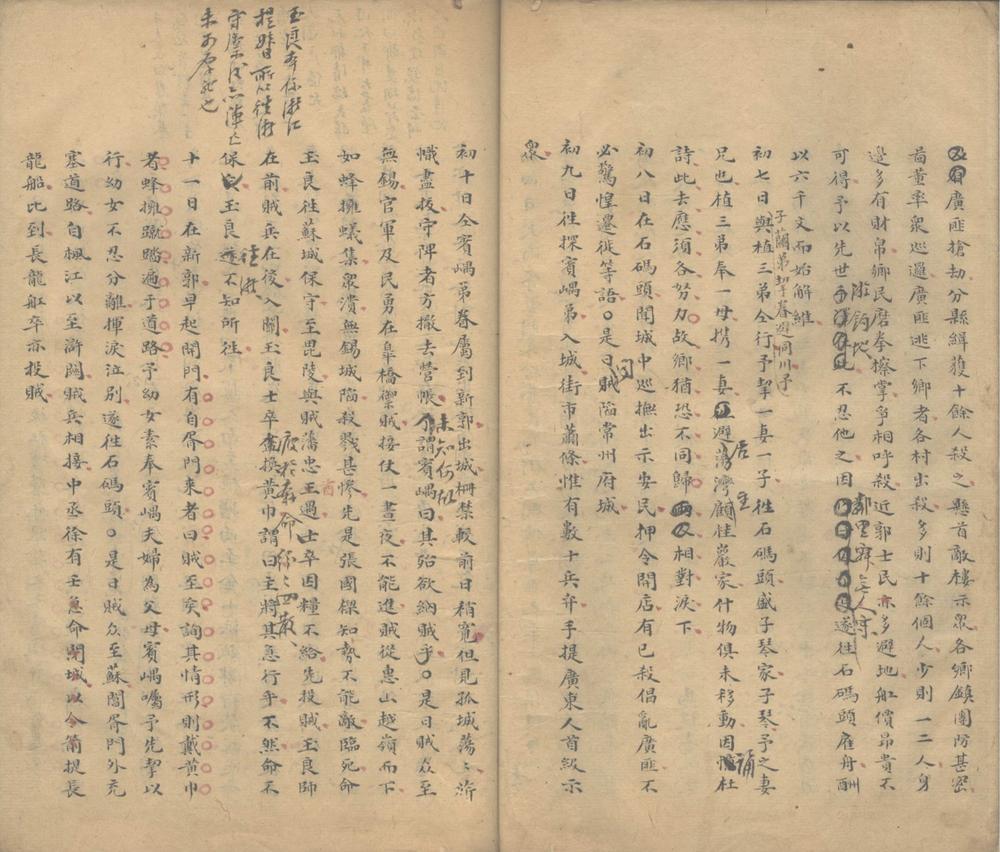 廣匪搶劫分縣緝獲十餘人殺之懸首敵樓示衆各鄉鎮團防甚密
董率衆巡邏廣匪逃下鄉者各村出殺多則十餘個人少則一二人身
邊多有財帛鄉民磨拳擦掌爭相呼殺近郭士民亦多避地舡價昂貴不
可得予以先世邱隴在此不忍他之因遂往石碼頭雇舟酬
以六千文而始解維
初七日與植三弟仝行予挈一妻一子往石碼頭盛子琴家子琴予之妻
子蘭弟挈眷避同川予
兄也植三弟奉一母携一妻避蕩灣顧桂巖家什物俱未移動因誦杜
詩此去應須各努力故鄉猶恐不同歸相對淚下
初八日在石碼頭聞城中巡撫出示安民押令開店有已殺倡亂廣匪不
必驚惶遷徙等語○是日聞賊陷常州府城
初九日往探賓嵎弟入城街市蕭條惟有數十兵弁手提廣東人首級示
衆
玉良本係浙江
提督所以往浙
守禦後亦陣亡
未可厚非也
初十日仝賓嵎弟眷屬到新郭出城柵禁較前日稍寬但見孤城蕩蕩旂
幟盡拔守陴者方撤去營帳未知何故謂賓嵎曰其殆欲納賊乎○是日賊众至
無錫官軍及民勇在皐橋禦賊接仗一晝夜不能進賊從惠山越嶺而下
如蜂擁蟻集衆潰無錫城陷殺戮甚慘先是張國樑知勢不能敵臨死命
玉良往蘇城保守至毘陵與賊酋藩忠王遇士卒因糧不給先投賊玉良師
在前賊兵在後入關玉良士卒盡換黃巾謂曰主將其急行乎不然命不
保玉良遂往浙不知所往
十一日在新郭早起開門有自胥門來者曰賊至矣詢其情形則戴黃巾
者蜂擁蹴踏遍于道路予幼女素奉賓嵎夫婦為父母賓嵎囑予先挈以
行幼女不忍分離揮淚泣別遂往石碼頭○是日賊众至蘇閶胥門外充
塞道路自楓江以至滸關賊兵相接中丞徐有壬急命閉城以令箭提長
龍船比到長龍舡卒亦投賊